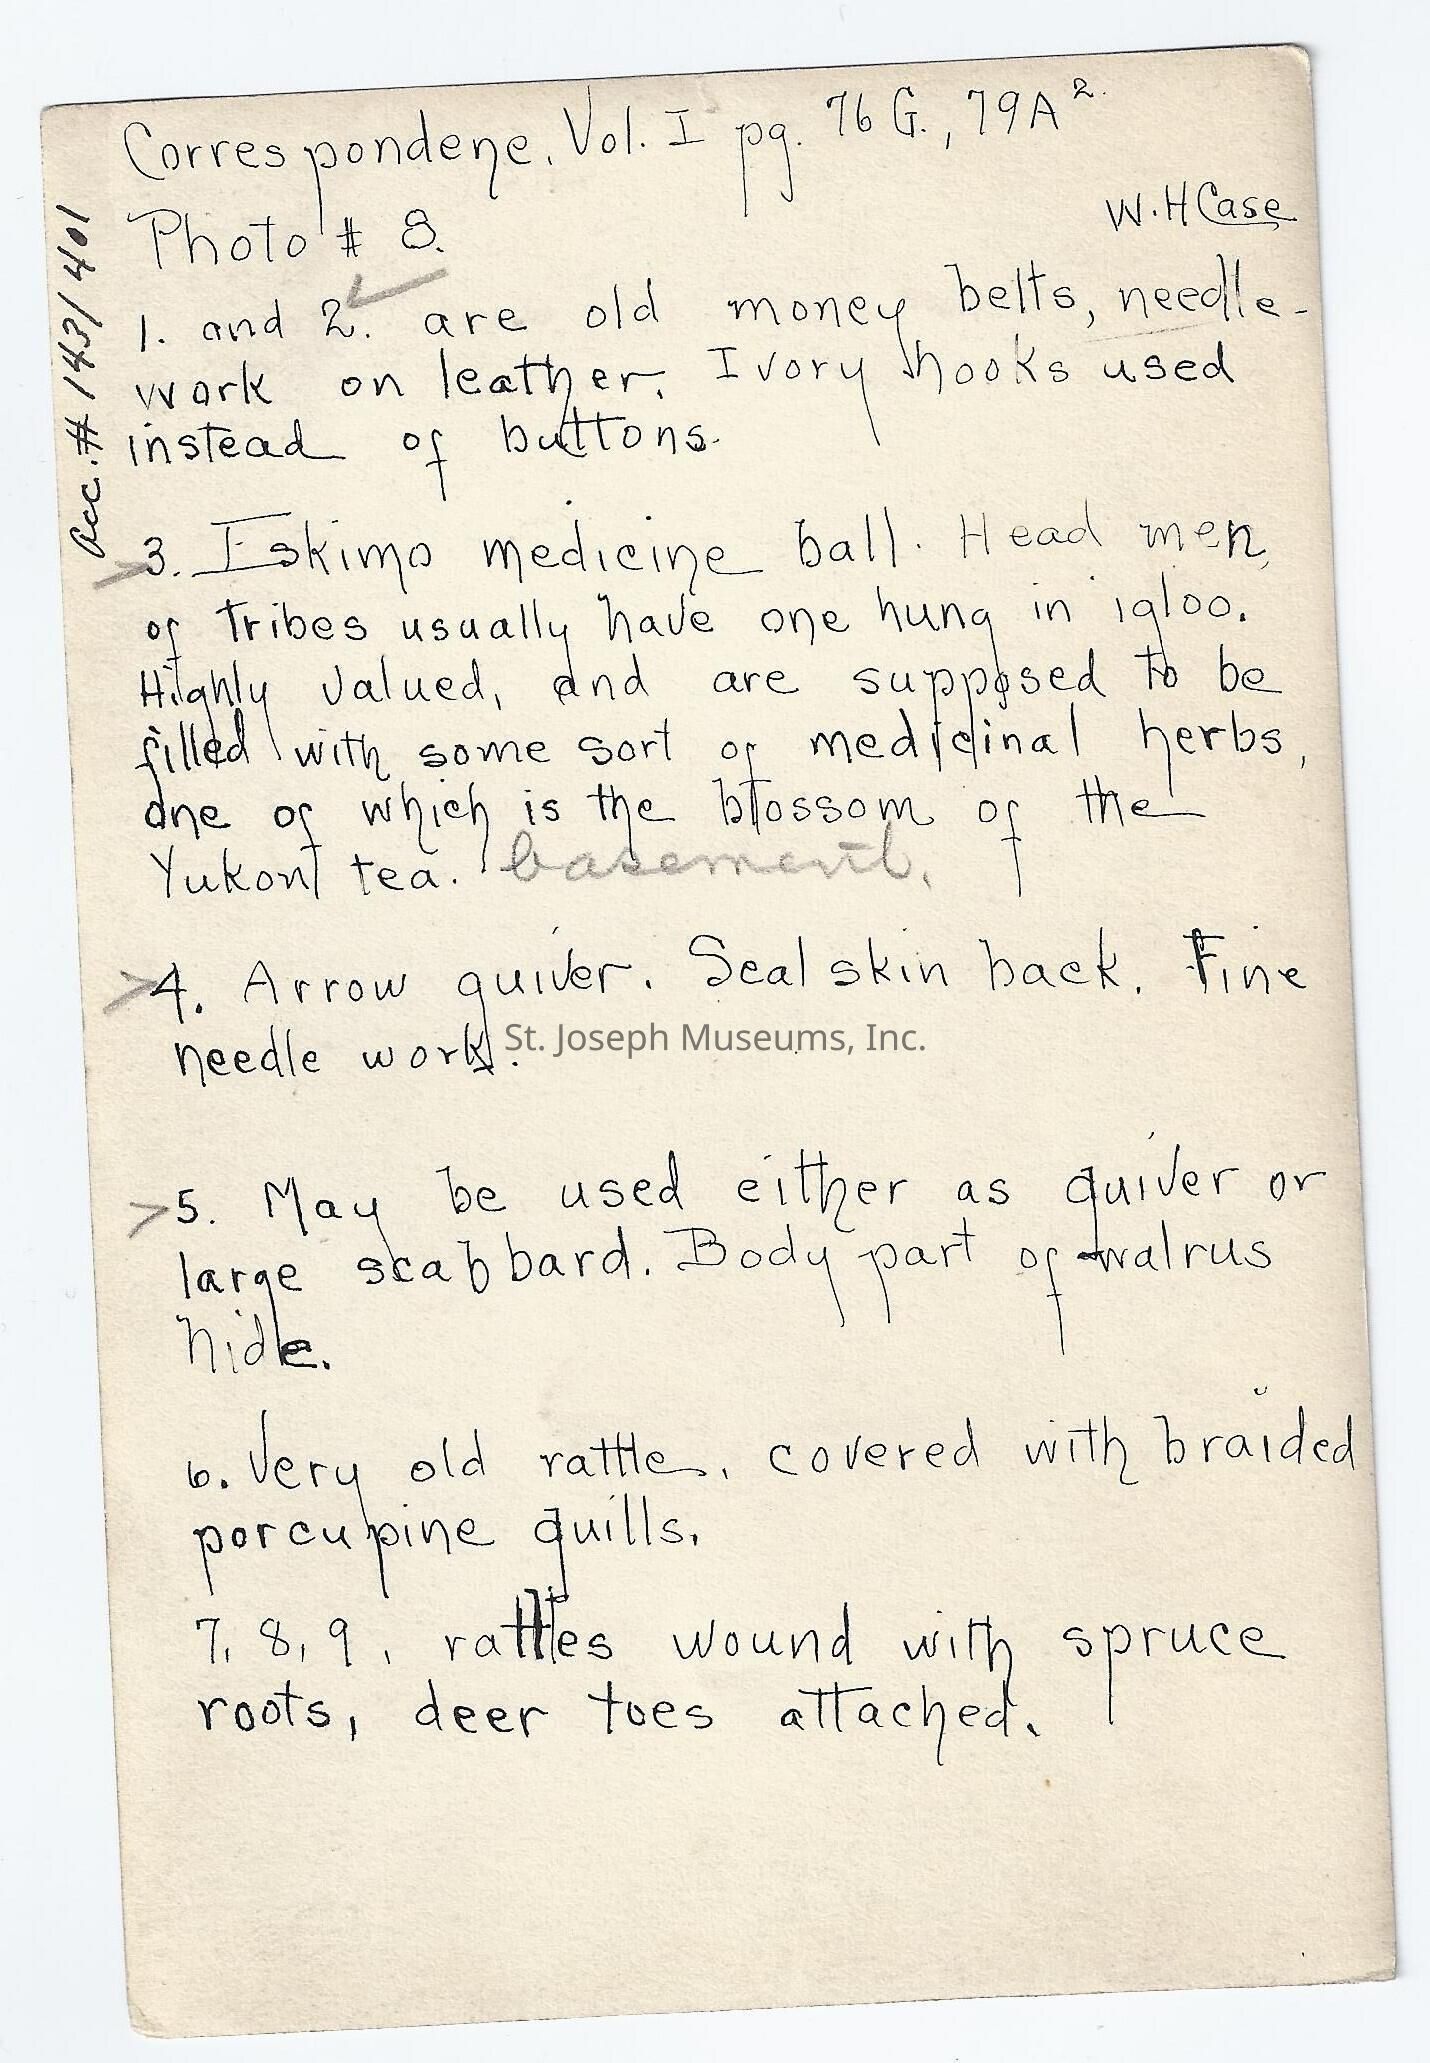 Correspondene. Vol. I pg. 76 G., 79A².
W.H Case
Photo # 8.
1. and 2. are old money belts, needle-
work on leather. Ivory hooks used
instead of buttons.
3. Eskimo medicine ball. Head men
of tribes usually have one hung in igloo.
Highly valued, and are supposed to be
filled with some sort of medicinal herbs,
one of which is the blossom of the
Yukon tea. basement.
4. Arrow quiver. Seal skin back. Fine
needle work.
5. May be used either as quiver or
large scabbard. Body part of walrus
hide.
6. Very old rattle, covered with braided
porcupine quills.
7, 8, 9, rattles wound with spruce
roots, deer toes attached.
Acc. # 143/401
St. Joseph Museums, Inc.